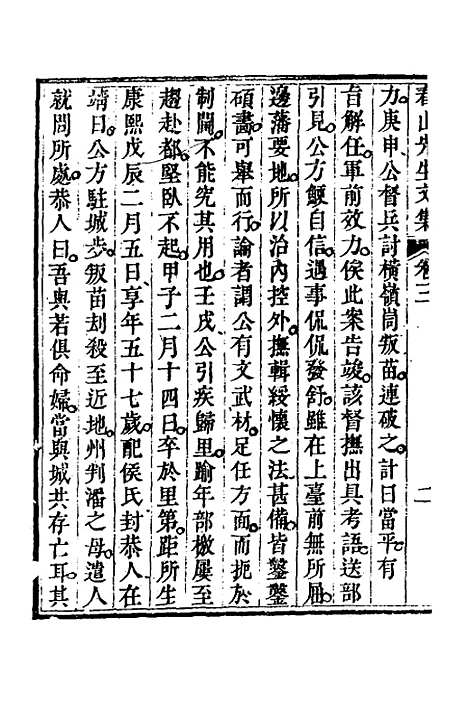 春山先生文集 卷三 二
力庚申公督兵討橫嶺峝叛苗連破之計日當平有
旨解任軍前效力俟此案告竣該督撫出具考語送部
引見公方鯁自信遇事侃侃發舒雖在上臺前無所屈
邊藩要地所以治內控外撫輯綏懷之法甚備皆鑿鑿
碩畫可舉而行論者謂公有文武材足任方面而扼於
制閫不能究其用也壬戌公引疾歸里踰年部檄屢至
趨赴都堅臥不起甲子二月十四日卒於里第距所生
康熙戊辰二月五日享年五十七歲配侯氏封恭人在
靖日公方駐城步叛苗刦殺至近地州判潘之母遣人
就問所處恭人曰吾與若俱命婦當與城共存亡耳其